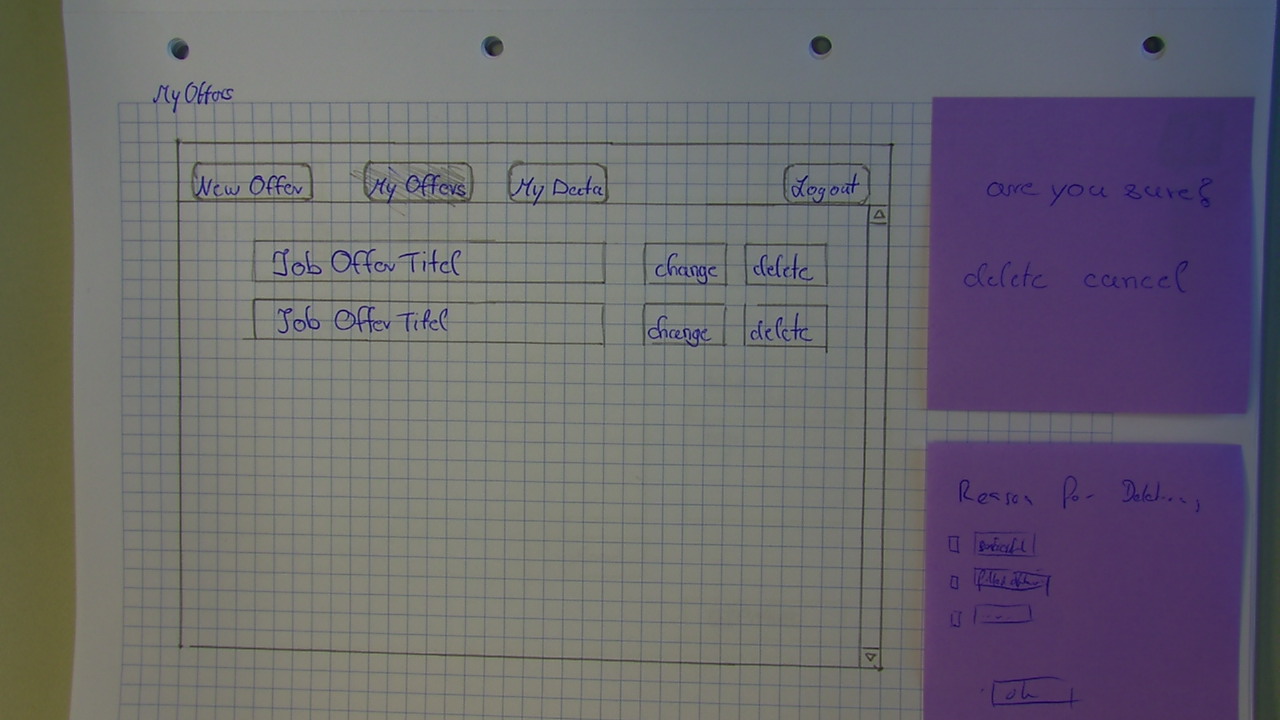 My Offers
New Offer My Offers My Data Logout
Job Offer Titel change delete
Job Offer Titel change delete
are you sure?
delete cancel
Reason for
...
ok